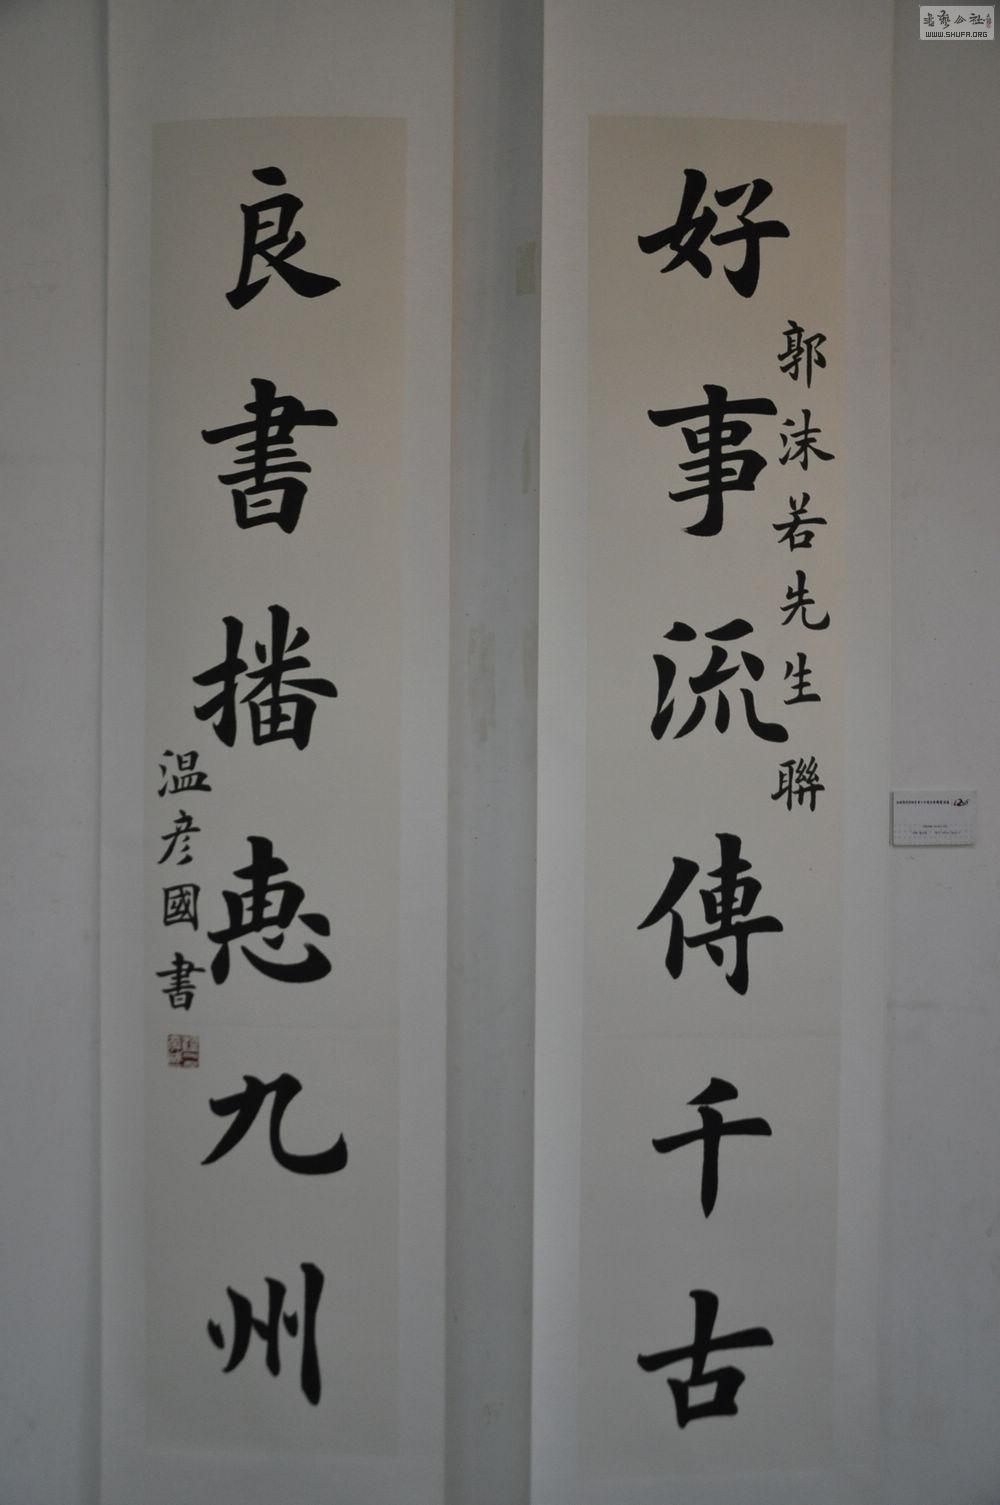 好事流傳千古
郭沫若先生聯
良書播惠九州
温彦國書
WWW.SHUFA.ORG